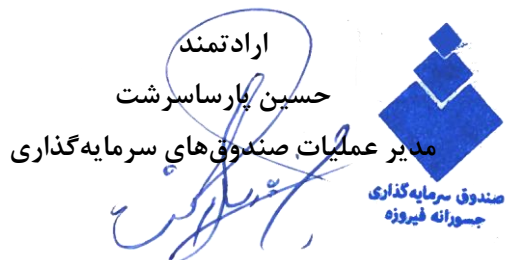 ارادتمند
حسین پارساسرشت
مدیر عملیات صندوق‌های سرمایه‌گذاری
صندوق سرمایه‌گذاری
جسورانه فیروزه